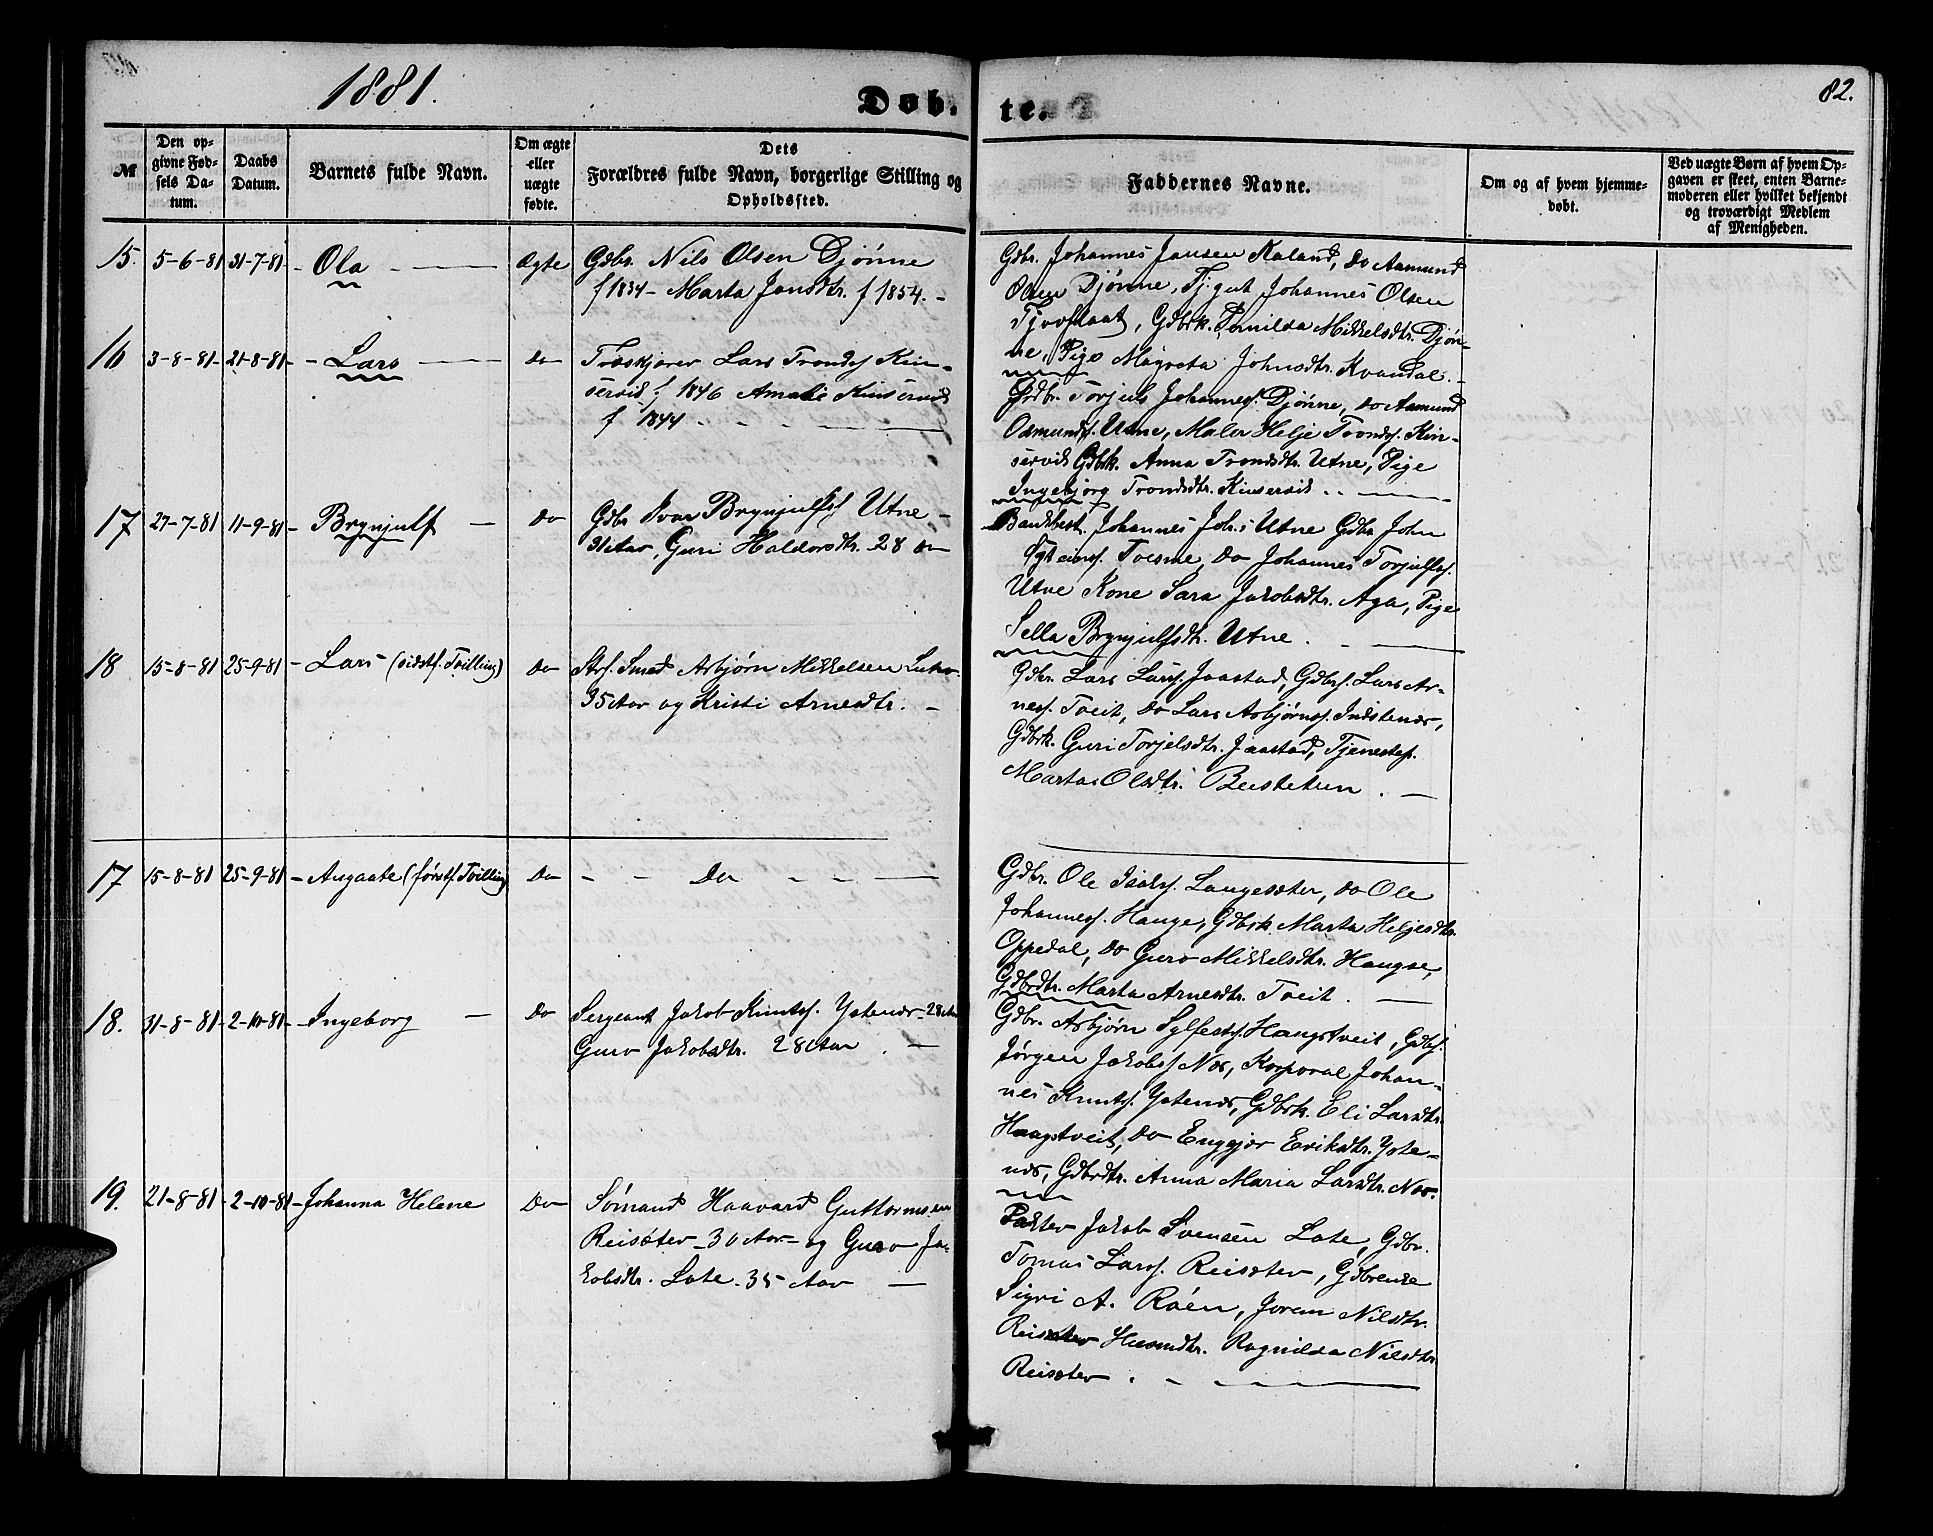 1881.
Døb.
te.
82.
№
Den op-
givne Fød-
sels Da-
tum.
Daabs
Datum.
Barnets fulde Navn.
Om ægte
eller
uægte
fødte.
Dets
Forældres fulde Navn, borgerlige Stilling og
Opholdssted.
Faddernes Navne.
Om og af hvem hjemme-
døbt.
Ved uægte Børn af hvem Op-
gaven er skeet, enten Barne-
moderen eller hvilket bekjendt
og troværdigt Medlem
af Menigheden.
15. 5-6-81 31-7-81 - Ola - Ægte Gdbr. Nils Olsen Djønne
f 1834 - Marta Jonsdtr. f 1854. -
Gdbr. Johannes Jansen Kaland, Do Aamund
Olsen Djønne, Tj.gut Johannes Olsen
Tjoflaat, Gdbrk. Pernilda Mikkelsdtr. Djøn-
ne, Pige Magreta Johnsdtr. Kvandal. -
16 3-8-81 - 21-8-81 - Lars - Do Træskjærer Lars Tronds Kin-
servik f 1846 Amalie Kinservik
f 1844 - - -
Gdbr. Torjuls Johannes. Djønne, Do Aamund
Osmunds. Utne, Maler Helje Tronds. Kin-
servik Gdbrk. Anna Trondsdtr. Utne, Pige
Ingebjørg Trondsdtr. Kinservik . . -
17 27-7-81 11-9-81 - Brynjulf - Do Gdbr Ivar Brynjulfs. Utne -
31 Aar, Guri Haldorsdtr. 28 Do
Johannes Joh.s Utne Gdbr John
Tvesme, Do Johannes Torjulfs.
Utne Kone Sara Jakobsdtr. Aga, Pige
Sella Brynjulfsdtr. Utne. -
18 15-8-81 25-9-81 - Lars (sidstf. Tvilling) Do Smed Asbjørn Mikkelsen
35 Aar og Kristi Arnesdtr. -
Gdbr. Lars Lars. Jaastad, Gdbrs. Lars Ar-
ness. Tveit, Do Lars Asbjørns. Indstenes,
Gdbrk. Guri Torjelsdtr. Jaastad, Tjenestep.
Marta Olsdtr. Bustetun . -
17 15-8-81 25-9-81 - Angaate (førstf. Tvilling) Do - - Do - - -
Gdbr. Ole Isaks. Langesæter, Do Ole
Johanness. Hauge, Gdbrk Marta Heljesdtr.
Oppedal, Do Guro Mikkelsdtr. Haugse,
Gdbrdtr. Marta Arnesdtr. Tveit . -
18. 31-8-81 - 2-10-81 - Ingeborg - Do Sergeant Jakob Knuts. Ystenæs - 28 Aar
Guro Jakobsdtr. 28 Aar . -
Gdbr. Asbjørn Sylfests. Haugstveit, Gdbs.
Jørgen Jakobs. Næs, Korporal Johan-
nes Knuts. Ystenæs, Gdbrk. Eli Larsdtr.
Haugstveit, Do Enggjær Eriksdtr. Yste-
næs, Gdbrdtr. Anna Maria Larsdtr. Næs.
19. 21-8-81 - 2-10-81 - Johanna Helene Do Sømand Haavard Guttormsen
Reisæter - 30 Aar - og Guro Ja-
kobsdtr. Lote. 35 Aar -
Jakob Svensen Lote, Gdbr.
Tomas Larss. Reisæter, Gdbrenke
Sigri A. Raaen, Joren Nilsdtr.
Reisæter Husmdtr. Ragnilda Nilsdtr
Reisæter . - - -